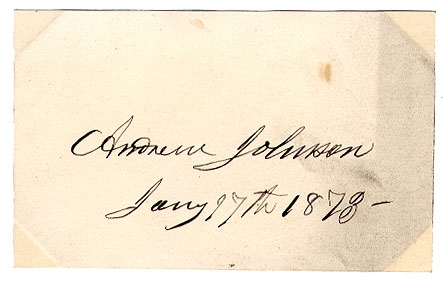 Andrew Johnson
Jany 17th 1873-